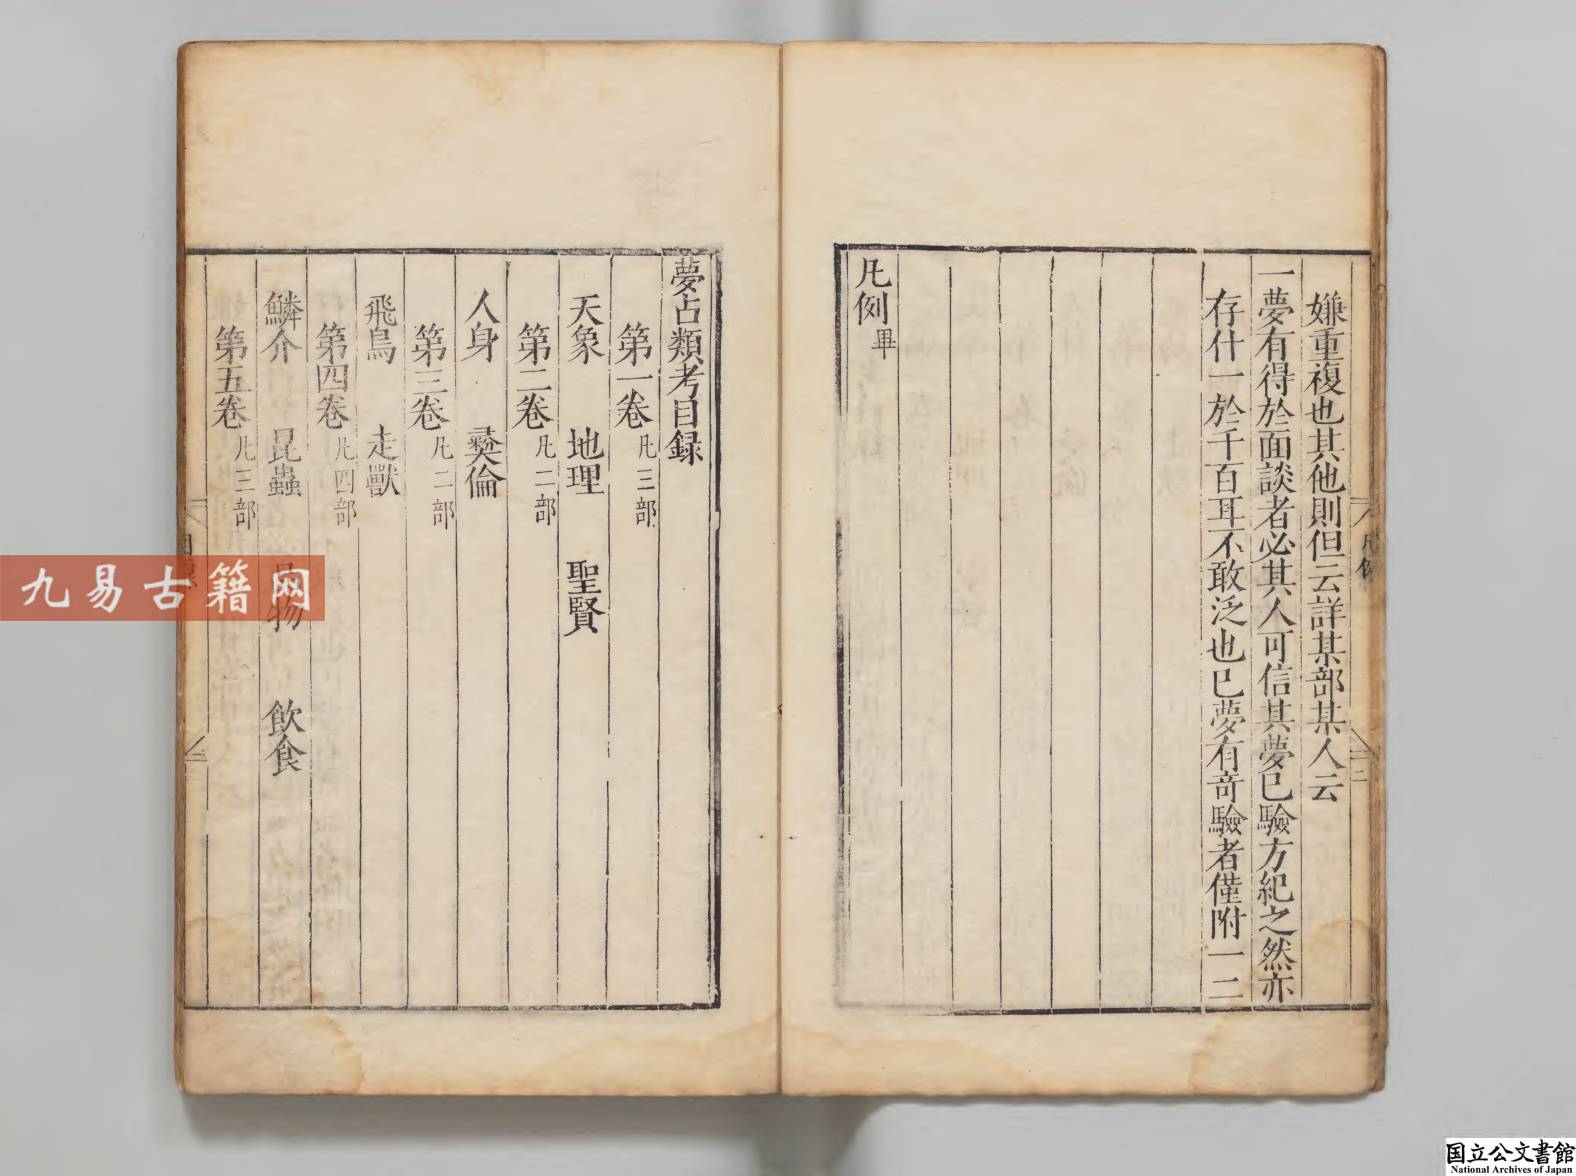 嫌重複也其他則但云詳某部某人云
一夢有得於面談者必其人可信其夢已驗方紀之然亦
存什一於千百耳不敢泛也已夢有竒驗者僅附一二
凡例畢
夢占類考目録
第一卷凡三部
天象 地理 聖賢
第二卷凡二部
人身 彜倫
第三卷凡二部
飛鳥 走獸
第四卷凡四部
鱗介 昆蟲 物 飲食
第五卷凡三部
凡例
二
九易古籍网
国立公文書館
National Archives of Japan